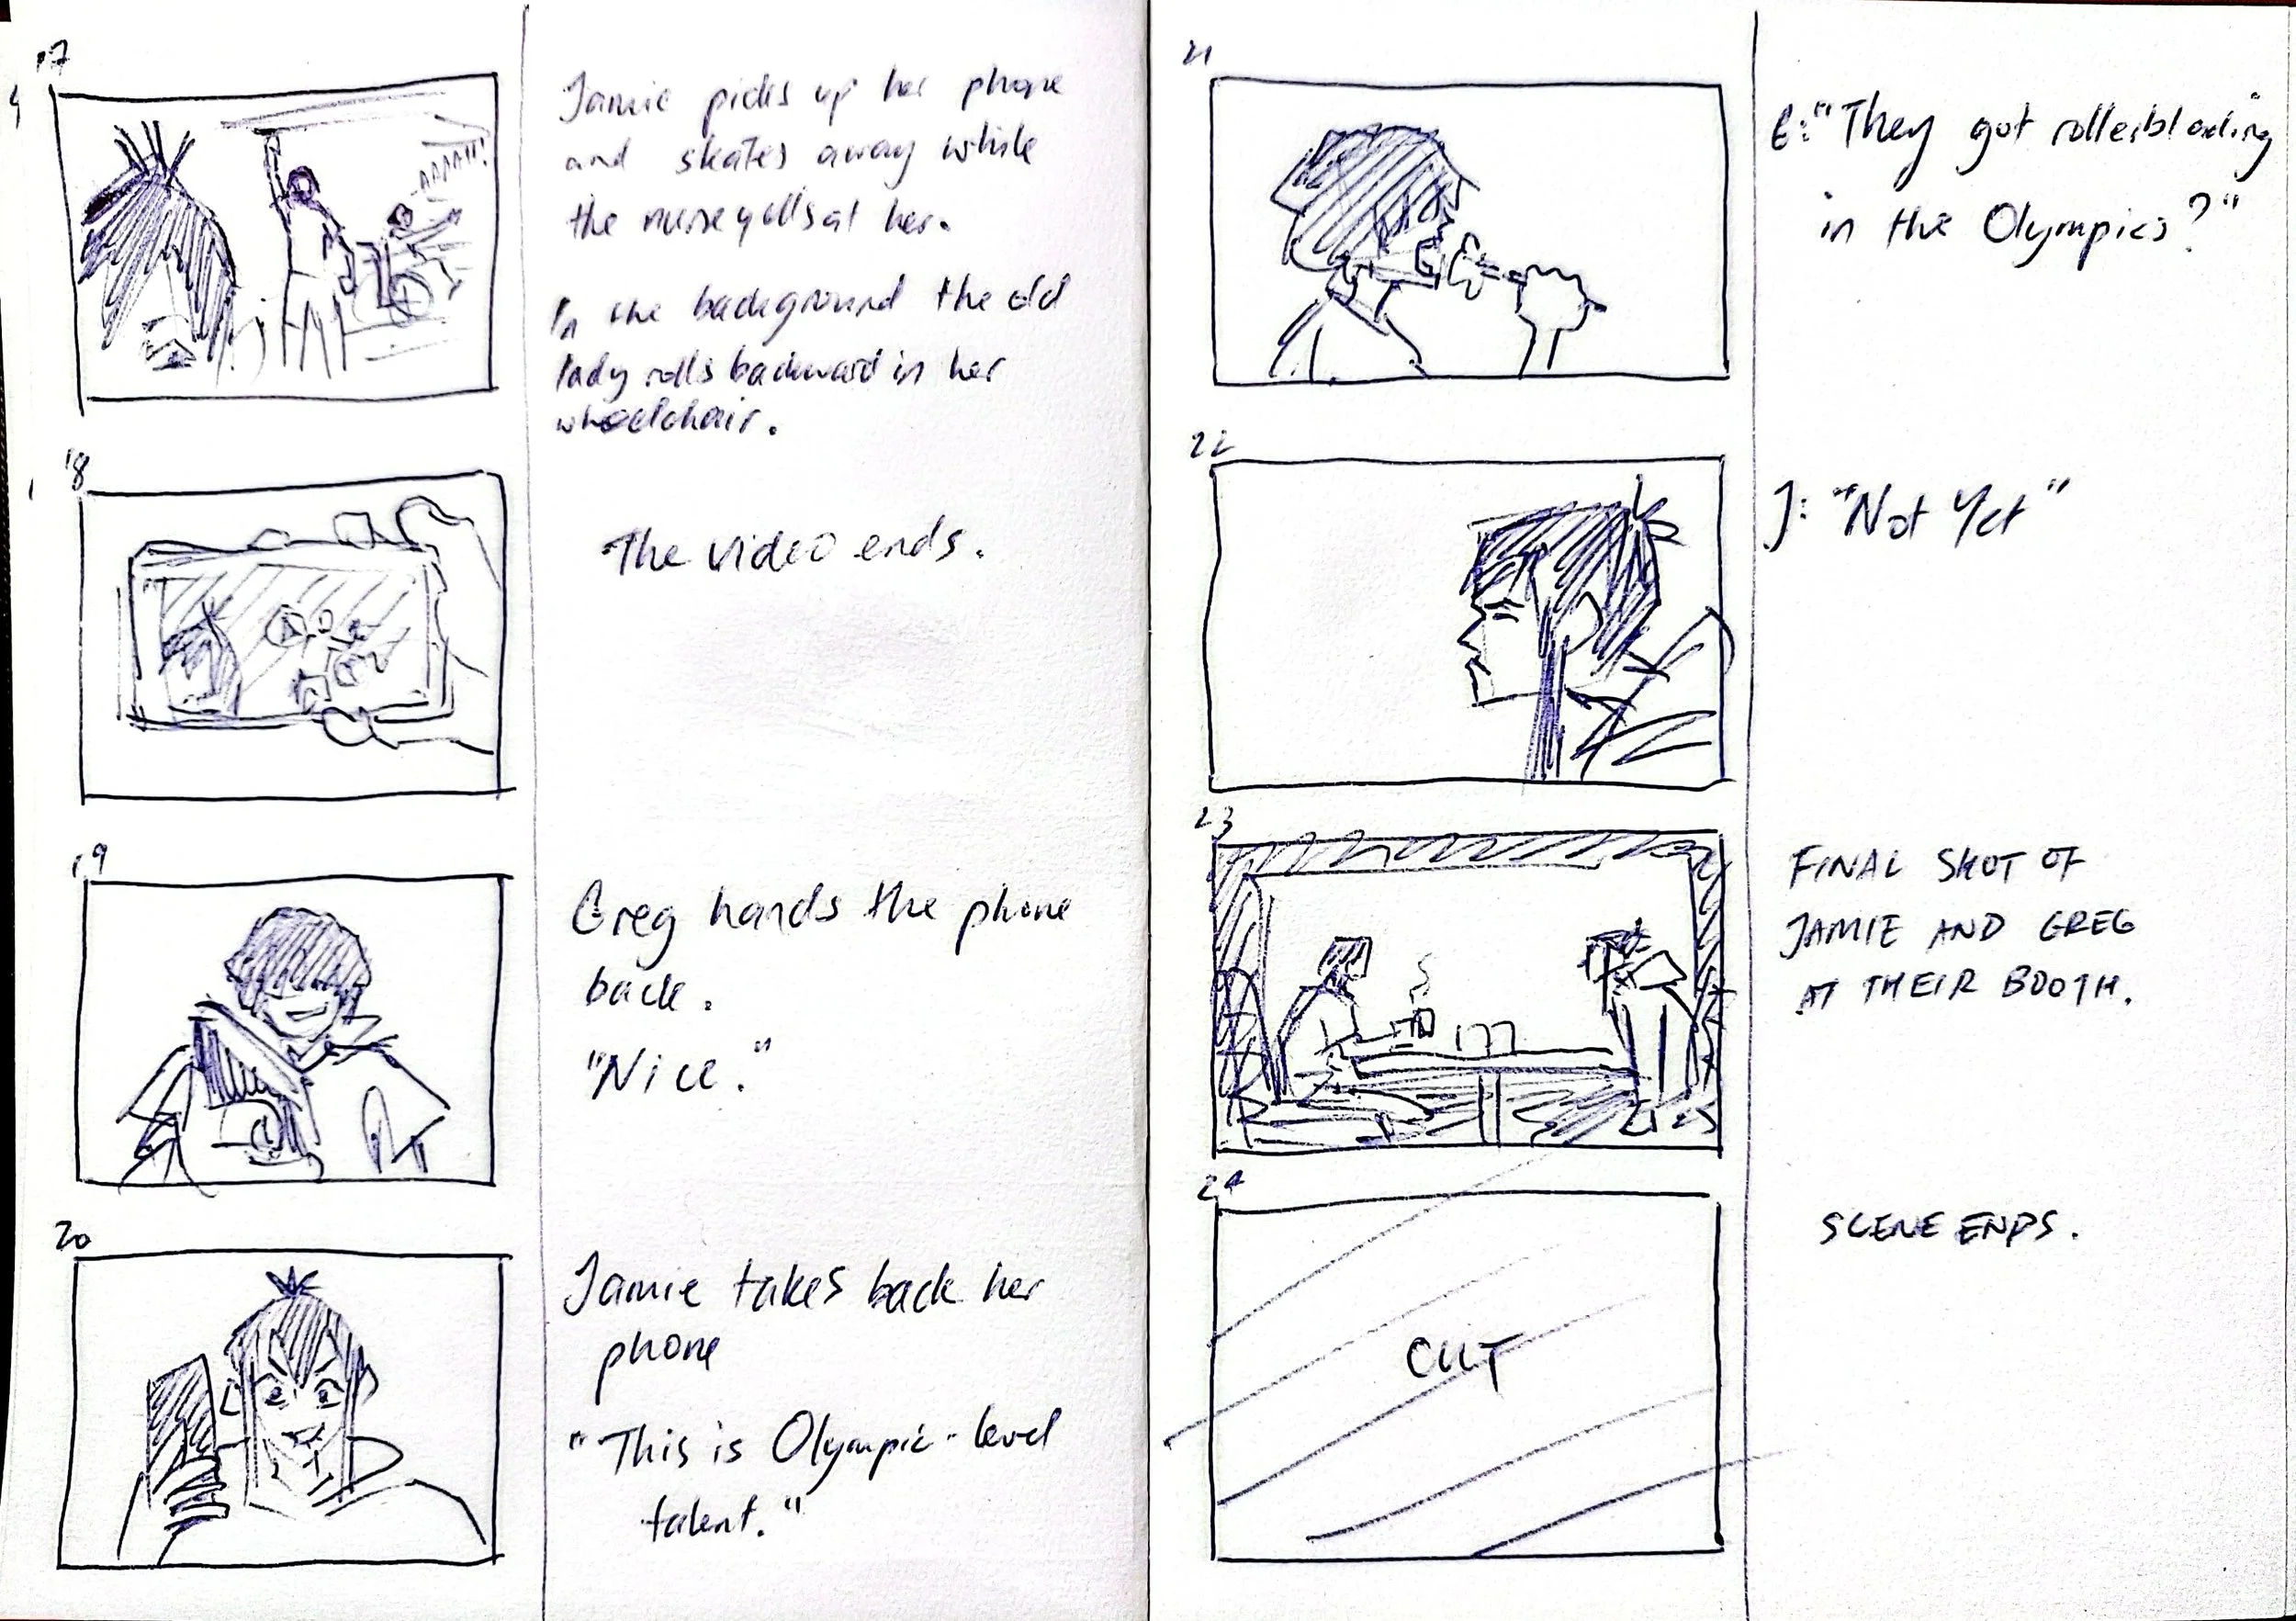 17
Jamie picks up her phone
and skates away while
the nurse yells at her.
In the background the old
lady rolls backward in her
wheelchair.
AAAA!!!
18
The video ends.
19
Greg hands the phone
back.
"Nice."
20
Jamie takes back her
phone
"This is Olympic-level
talent."
21
G: "They got rollerblading
in the Olympics?"
22
J: "Not Yet"
23
FINAL SHOT OF
JAMIE AND GREG
AT THEIR BOOTH.
24
CUT
SCENE ENDS.